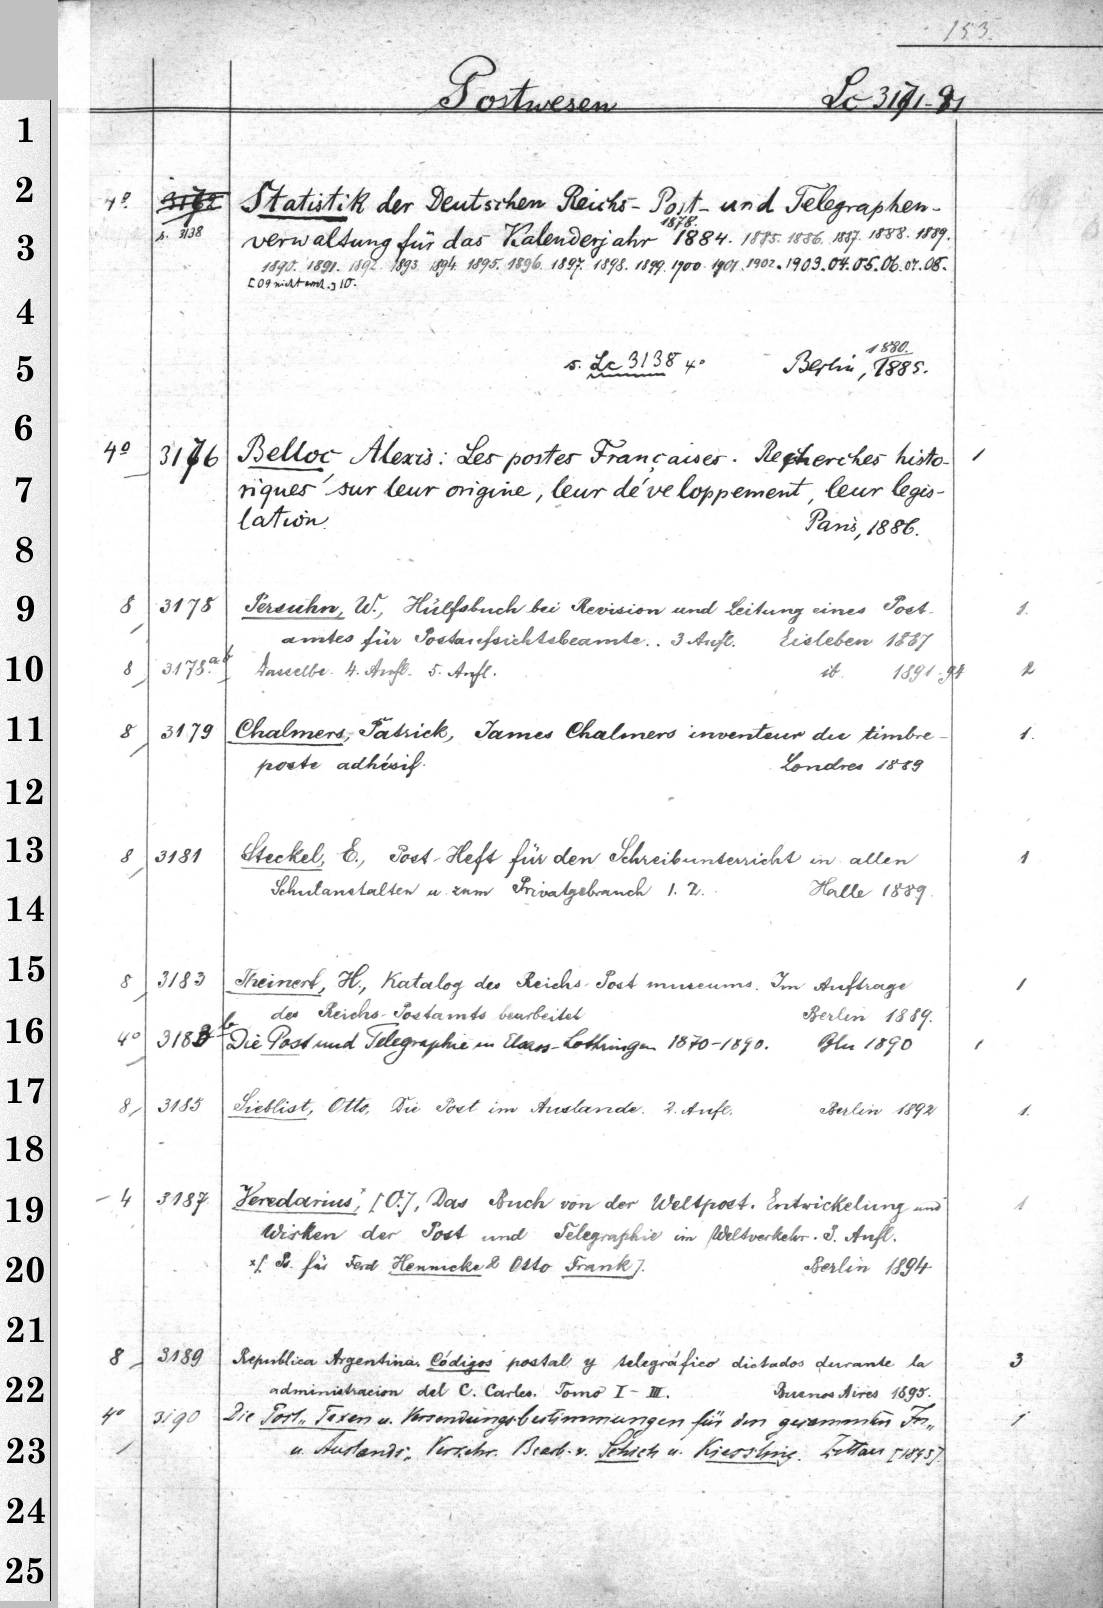 153.
Postwesen Lc 3171-91
1
2
3
4
5
6
7
8
9
10
11
12
13
14
15
16
17
18
19
20
21
22
23
24
25
4º 3172 Statistik der Deutschen Reichs- Post- und Telegraphen-
s. 3138 verwaltung für das Kalenderjahr 1878. 1884. 1885. 1886. 1887. 1888. 1889.
1890. 1891. 1892. 1893. 1894. 1895. 1896. 1897. 1898. 1899. 1900. 1901. 1902. 1903. 04. 05. 06. 07. 08.
[09 nicht ersch.] 10.
s. Lc 3138 4º Berlin, 1880. 1885.
4º 3176 Belloc, Alexis: Les postes Françaises. Recherches histo- 1
riques sur leur origine, leur développement, leur legis-
lation. Paris, 1886.
8 3178 Persuhn, W., Hülfsbuch bei Revision und Leitung eines Post- 1.
amtes für Postaufsichtsbeamte.. 3 Aufl. Eisleben 1887
8 3178 a b Dasselbe. 4. Aufl. 5. Aufl. ib. 1891. 94 2
8 3179 Chalmers, Patrick, James Chalmers inventeur du timbre- 1.
poste adhésif. Londres 1889
8 3181 Steckel, E., Post-Heft für den Schreibunterricht in allen 1
Schulanstalten u. zum Privatgebrauch 1. 2. Halle 1889.
8 3183 Theinert, H., Katalog des Reichs-Postmuseums. Im Auftrage 1
des Reichs-Postamts bearbeitet Berlin 1889.
4º 3183 b Die Post und Telegraphie in Elsass-Lothringen 1870-1890. Bln 1890 1
8 3185 Sieblist, Otto, Die Post im Auslande. 2. Aufl. Berlin 1892 1.
4 3187 Veredarius*, [O.], Das Buch von der Weltpost. Entwickelung und 1
Wirken der Post und Telegraphie im Weltverkehr. 3. Aufl.
*[. Ps. für Ferd Hennicke & Otto Frank]. Berlin 1894
8 3189 Republica Argentina. Códigos postal y telegráfico dictados durante la 3
administracion del C. Carles. Tomo I-III. Buenos Aires 1895.
4º 3190 Die Post-Taxen u. Versendungsbestimmungen für den gesammten In- 1
u. Auslands-Verkehr. Bearb. v. Schich u. Kiessling. Zittau [1895].